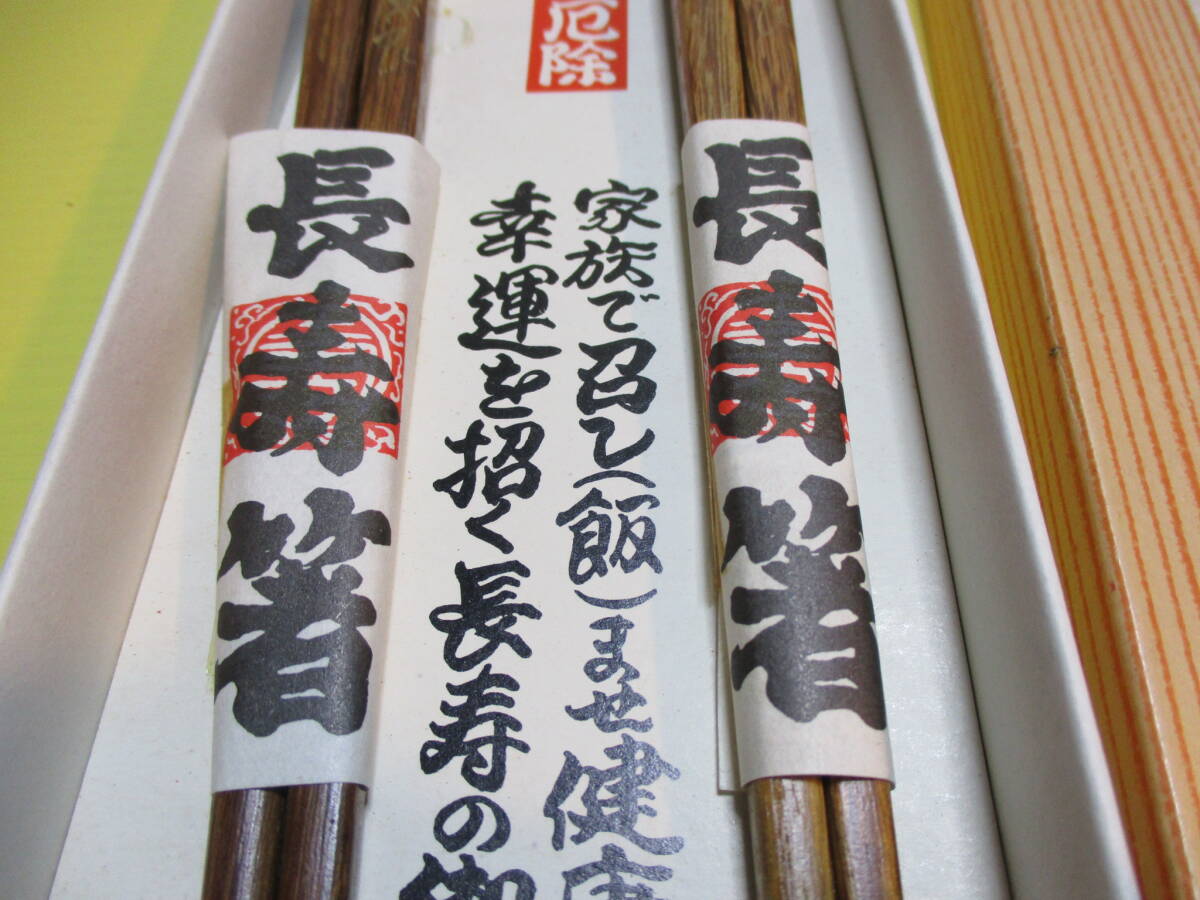 厄除
長寿箸
家族で召し(飯)ませ健康
幸運を招く長寿の御
長寿箸